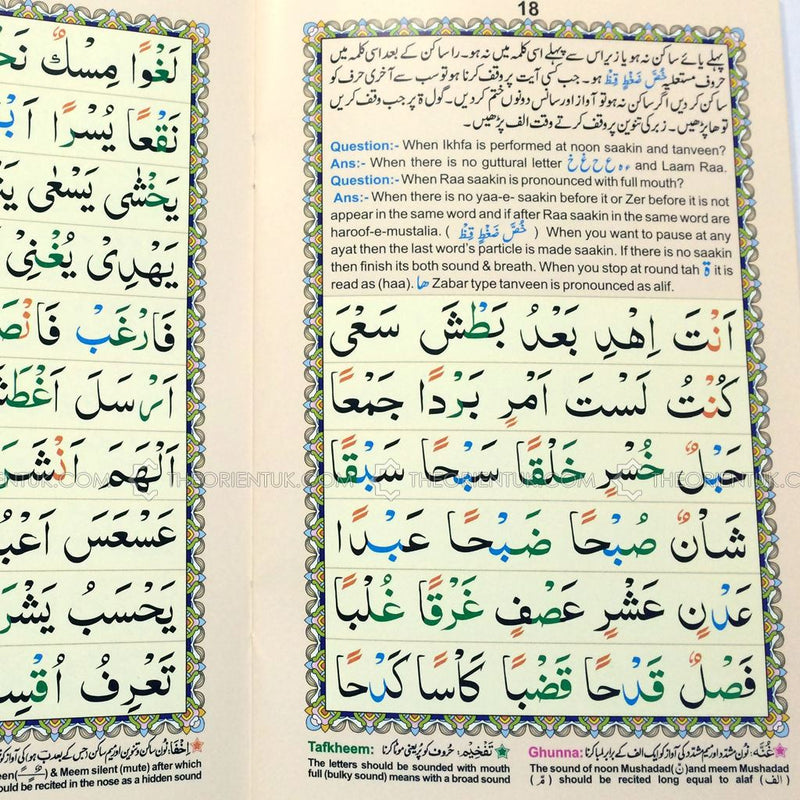 18
پہلے یائے ساکن نہ ہو یا زیر اس سے پہلے اسی کلمہ میں نہ ہو۔ را ساکن کے بعد اسی کلمہ میں
حروف مستعلیہ خُصَّ ضَغْطٍ قِظْ ہو۔ جب کسی آیت پر وقف کرنا ہو تو سب سے آخری حرف کو
ساکن کر دیں اگر ساکن نہ ہو تو آواز اور سانس دونوں ختم کر دیں۔ گول ة پر جب وقف کریں
تو ھا پڑھیں۔ زبر کی تنوین پر وقف کرتے وقت الف پڑھیں۔
Question:- When Ikhfa is performed at noon saakin and tanveen?
Ans:- When there is no guttural letter ء ہ ع ح غ خ and Laam Raa.
Question:- When Raa saakin is pronounced with full mouth?
Ans:- When there is no yaa-e- saakin before it or Zer before it is not
appear in the same word and if after Raa saakin in the same word are
haroof-e-mustalia. ( خُصَّ ضَغْطٍ قِظْ ) When you want to pause at any
ayat then the last word's particle is made saakin. If there is no saakin
then finish its both sound & breath. When you stop at round tah ة it is
read as (haa). ھا Zabar type tanveen is pronounced as alif.
اَنْتَ اِهْدِ بَعْدُ بَطْشَ سَعْیَ
كُنْتُ لَسْتَ اَمْرٍ بَرْدًا جَمْعًا
حَبْلٌ خُسْرٍ خَلْقًا سَبْحًا سَبْقًا
شَاْنٌ صُبْحًا ضَبْحًا عَبْدًا
عَدْنٍ عَشْرٍ عَصْفٍ غَرْقًا غُلْبًا
فَصْلٌ قَدْحًا قَضْبًا كَاْسًا كَدْحًا
غُنَّه: نون مشدّد اور میم مشدّد کی آواز کو ایک الف کے برابر لمبا کرنا
Ghunna: The sound of noon Mushadad(نّ)and meem Mushadad
(مّ) should be recited long equal to alaf (الف)
تَفْخِیْم: حروف کو پُر یعنی موٹا کرنا
Tafkheem: The letters should be sounded with mouth
full (bulky sound) means with a broad sound
لَغْوًا مِسْكٌ
نَقْعًا يُسْرًا
يَخْشٰى يَسْعٰى
يَهْدِىْ يُغْنِىْ
فَارْغَبْ
اَرْسَلَ
اَلْهَمَ
عَسْعَسَ
يَحْسَبُ
تَعْرِفُ
& Meem silent (mute) after which
be recited in the nose as a hidden sound
THEORIENTUK.COM
THEORIENTUK.COM